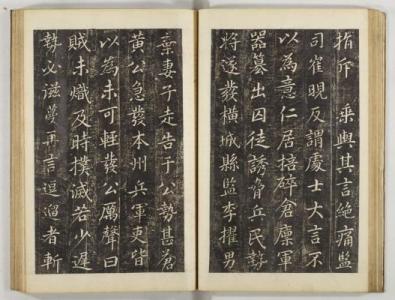 指斥　乘輿其言絶痛監
司崔晛反謂處士大言不
以為意仁居掊碎倉廩軍
器募出囚徒誘脅兵民勢
將遂發橫城縣監李擢男
棄妻子走告于公勢甚蒼
黃公急發本州兵軍吏皆
以為未可輕發公厲聲曰
賊未熾及時撲滅若少遲
勢必滋蔓再言逗遛者斬